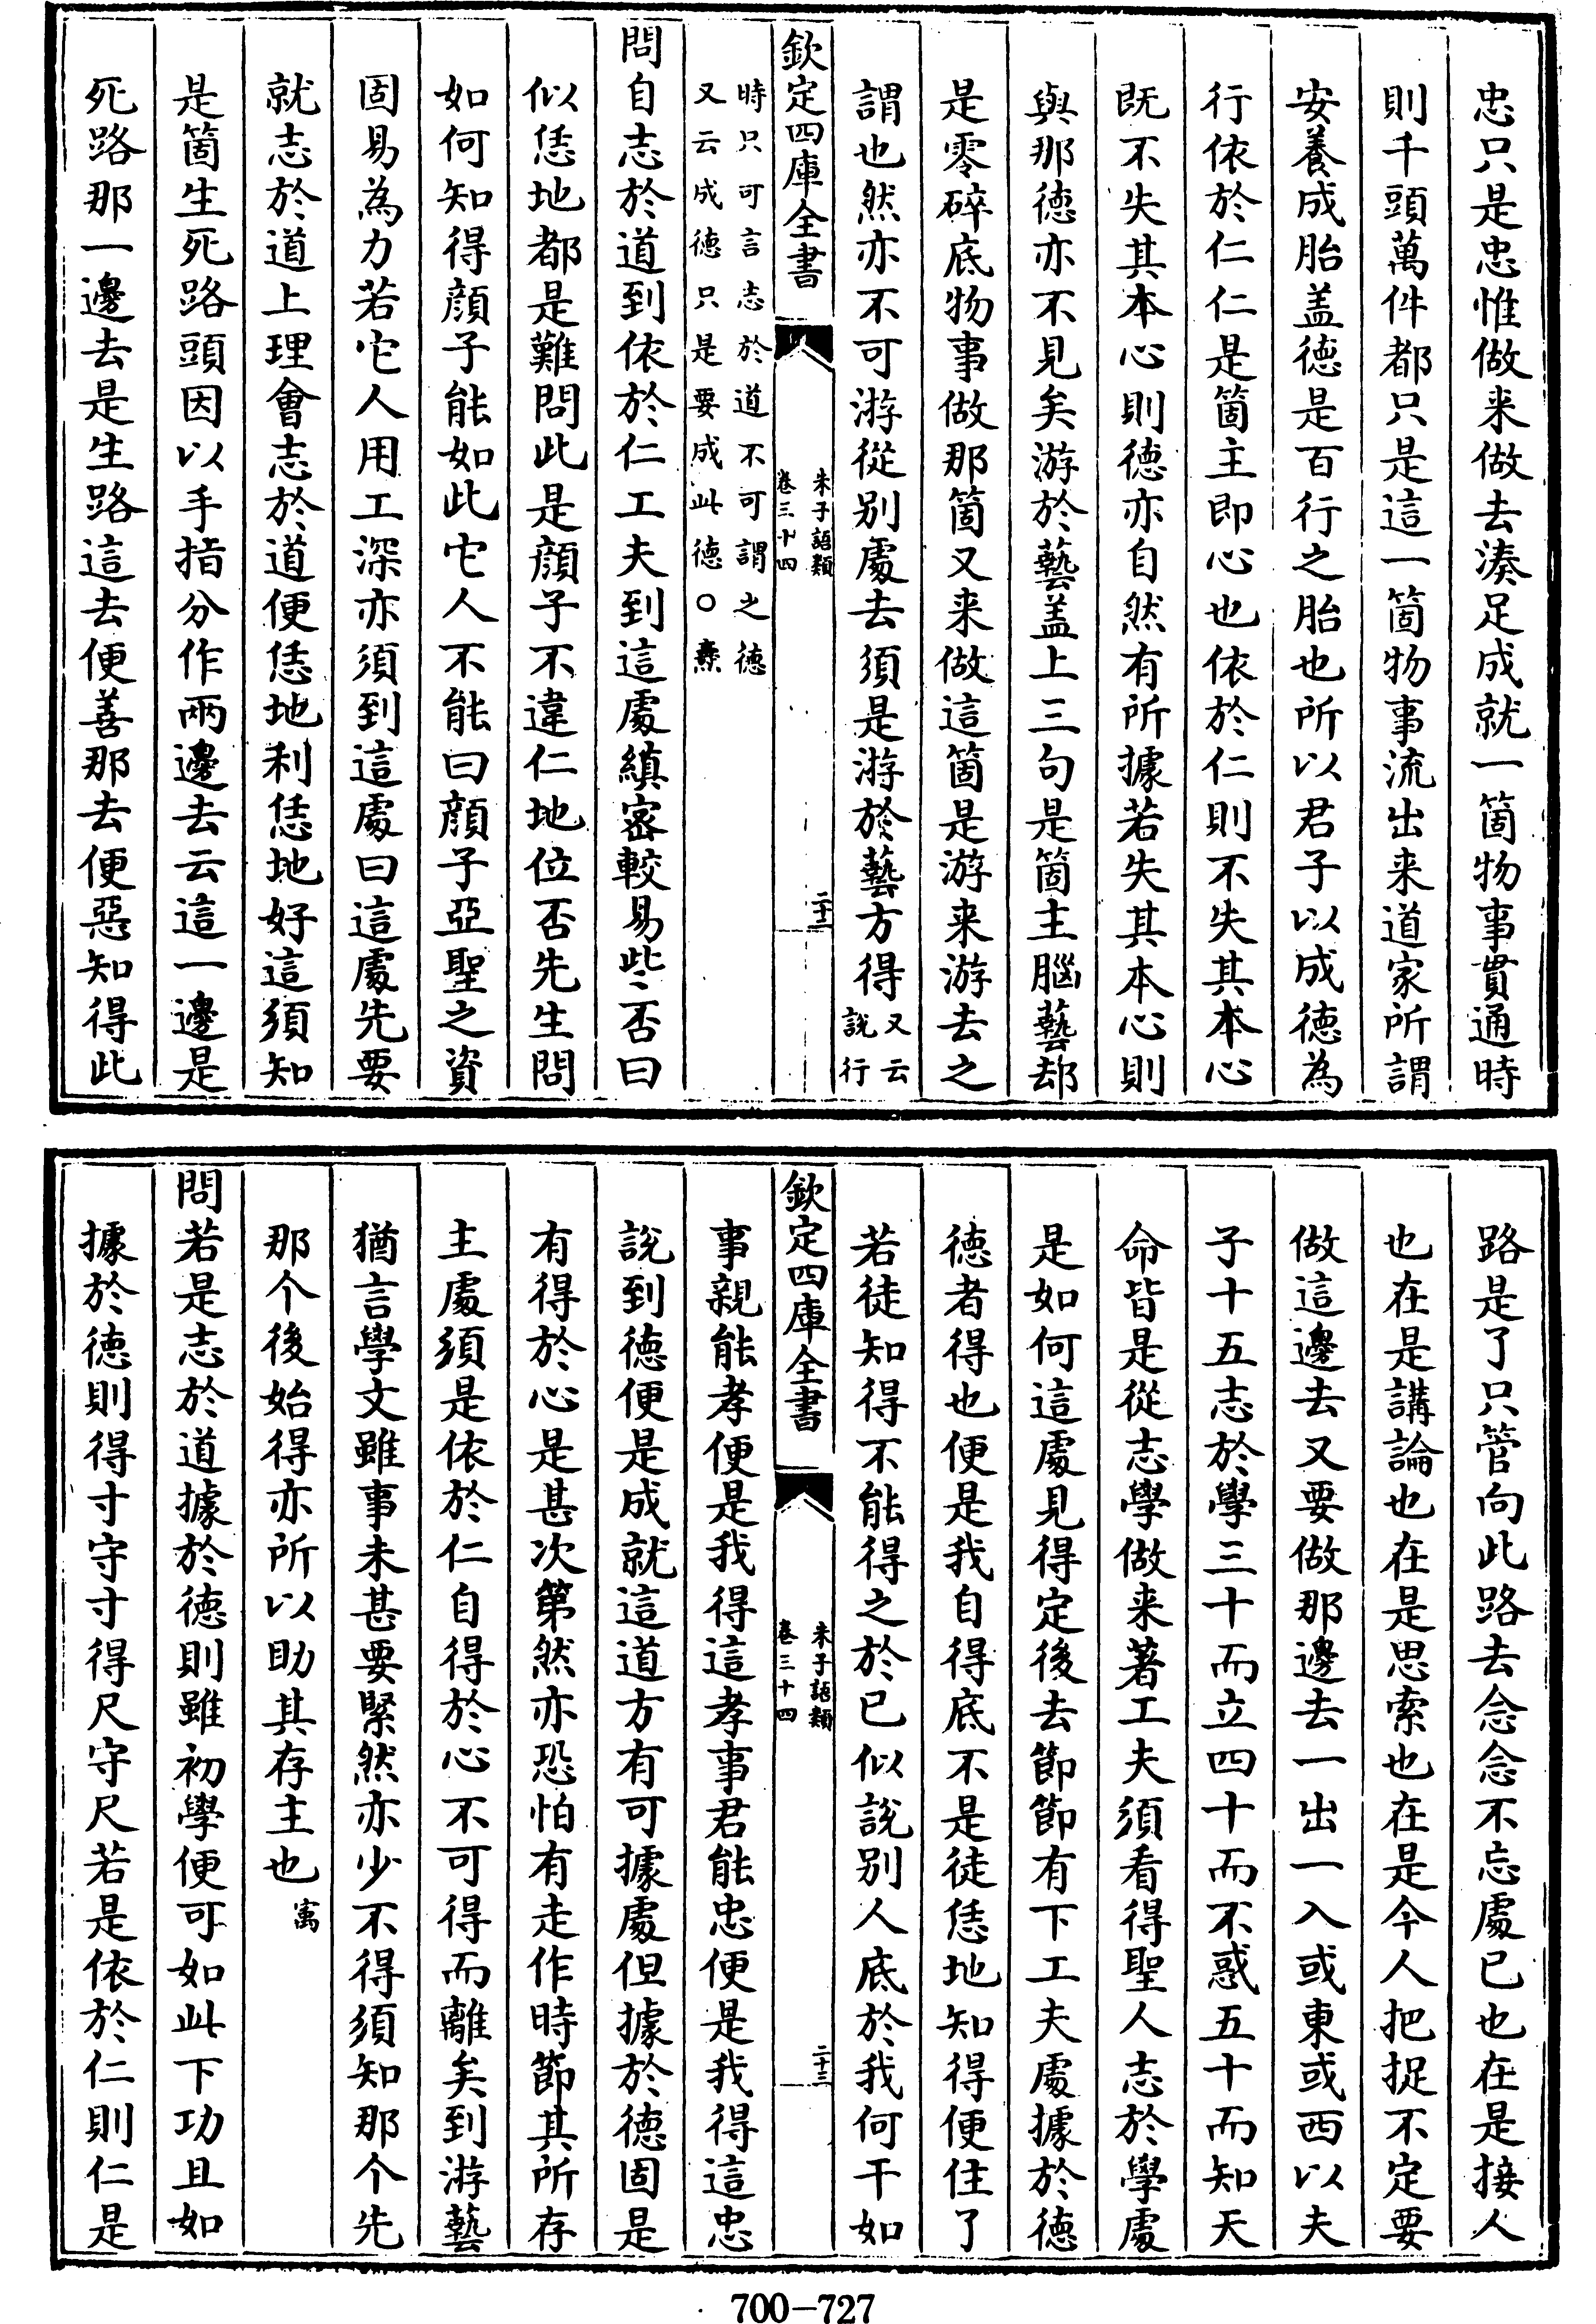 忠只是忠惟做来做去湊足成就一箇物事貫通時
則千頭萬件都只是這一箇物事流出来道家所謂
安養成胎盖徳是百行之胎也所以君子以成徳為
行依於仁仁是箇主即心也依於仁則不失其本心
既不失其本心則徳亦自然有所據若失其本心則
與那徳亦不見矣游於藝盖上三句是箇主腦藝却
是零碎底物事做那箇又来做這箇是游来游去之
謂也然亦不可游從别處去須是游於藝方得又云
說行
欽定四庫全書
朱子語類
卷三十四
二十三
時只可言志於道不可謂之徳
又云成徳只是要成此徳○燾
問自志於道到依於仁工夫到這處縝宻較易些否曰
似恁地都是難問此是顔子不違仁地位否先生問
如何知得顔子能如此它人不能曰顔子亞聖之資
固易為力若它人用工深亦須到這處曰這處先要
就志於道上理會志於道便恁地利恁地好這須知
是箇生死路頭因以手指分作兩邊去云這一邊是
死路那一邊去是生路這去便善那去便惡知得此
路是了只管向此路去念念不忘處已也在是接人
也在是講論也在是思索也在是今人把捉不定要
做這邊去又要做那邊去一出一入或東或西以夫
子十五志於學三十而立四十而不惑五十而知天
命皆是從志學做来著工夫須看得聖人志於學處
是如何這處見得定後去節節有下工夫處據於徳
徳者得也便是我自得底不是徒恁地知得便住了
若徒知得不能得之於已似說别人底於我何干如
欽定四庫全書
朱子語類
卷三十四
二十三
事親能孝便是我得這孝事君能忠便是我得這忠
說到徳便是成就這道方有可據處但據於徳固是
有得於心是甚次第然亦恐怕有走作時節其所存
主處須是依於仁自得於心不可得而離矣到游藝
猶言學文雖事未甚要緊然亦少不得須知那个先
那个後始得亦所以助其存主也㝢
問若是志於道據於徳則雖初學便可如此下功且如
據於徳則得寸守寸得尺守尺若是依於仁則仁是
700-727